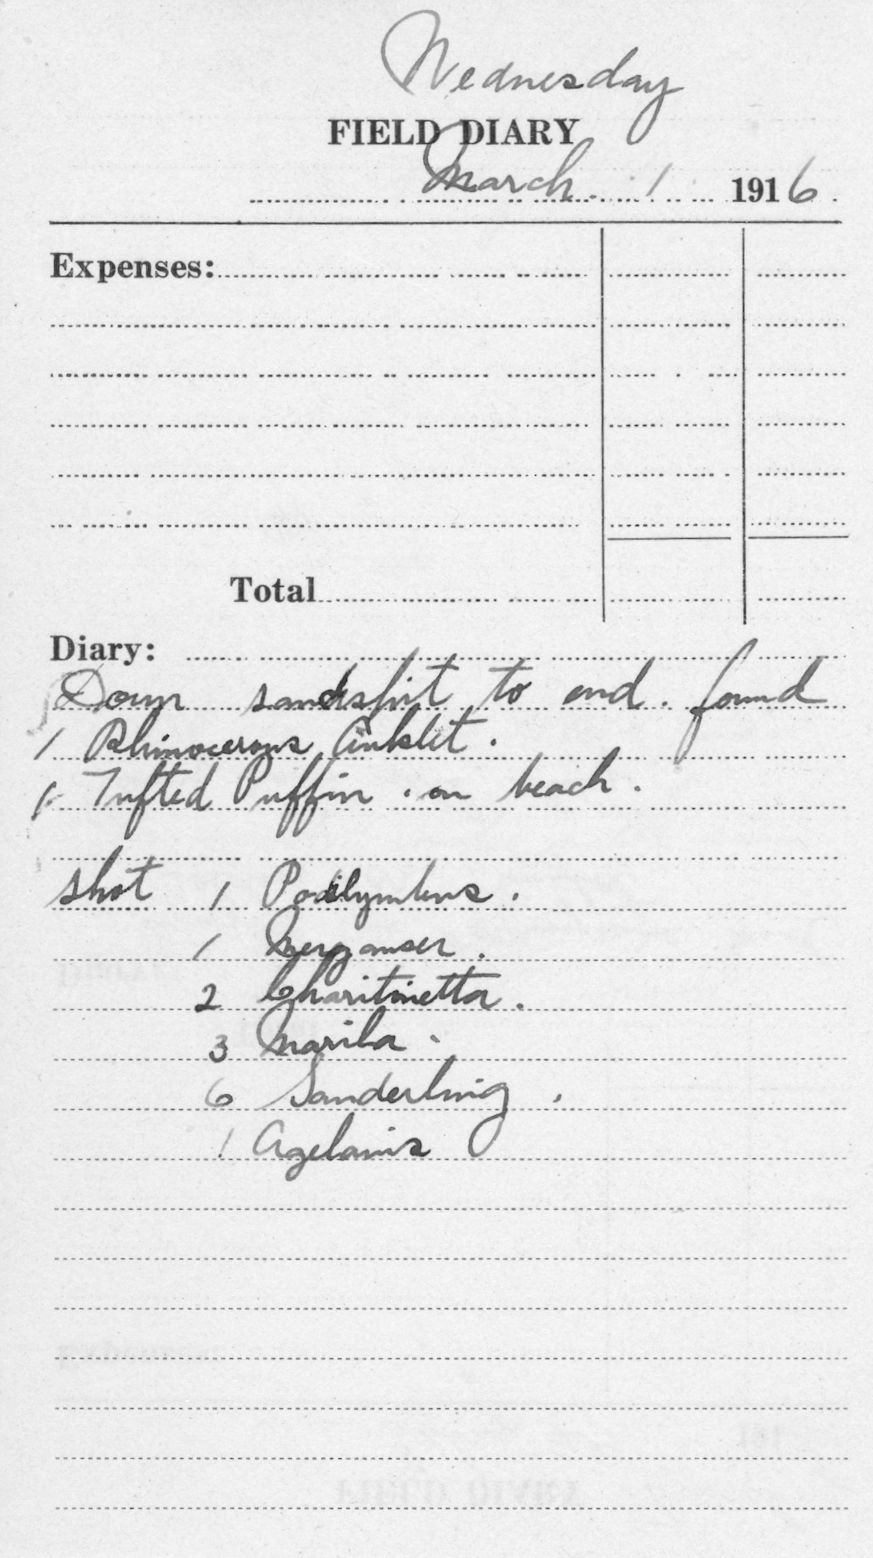 Wednesday
FIELD DIARY
March. 1 1916.
Expenses:
Total
Diary:
Down sandspit to end. found
1 Rhinocerous Auklet.
1 Tufted Puffin. on beach.
shot 1 Podilymbus.
1 Merganser.
2 Charitonetta.
3 Marila.
6 Sanderling.
1 Agelaius